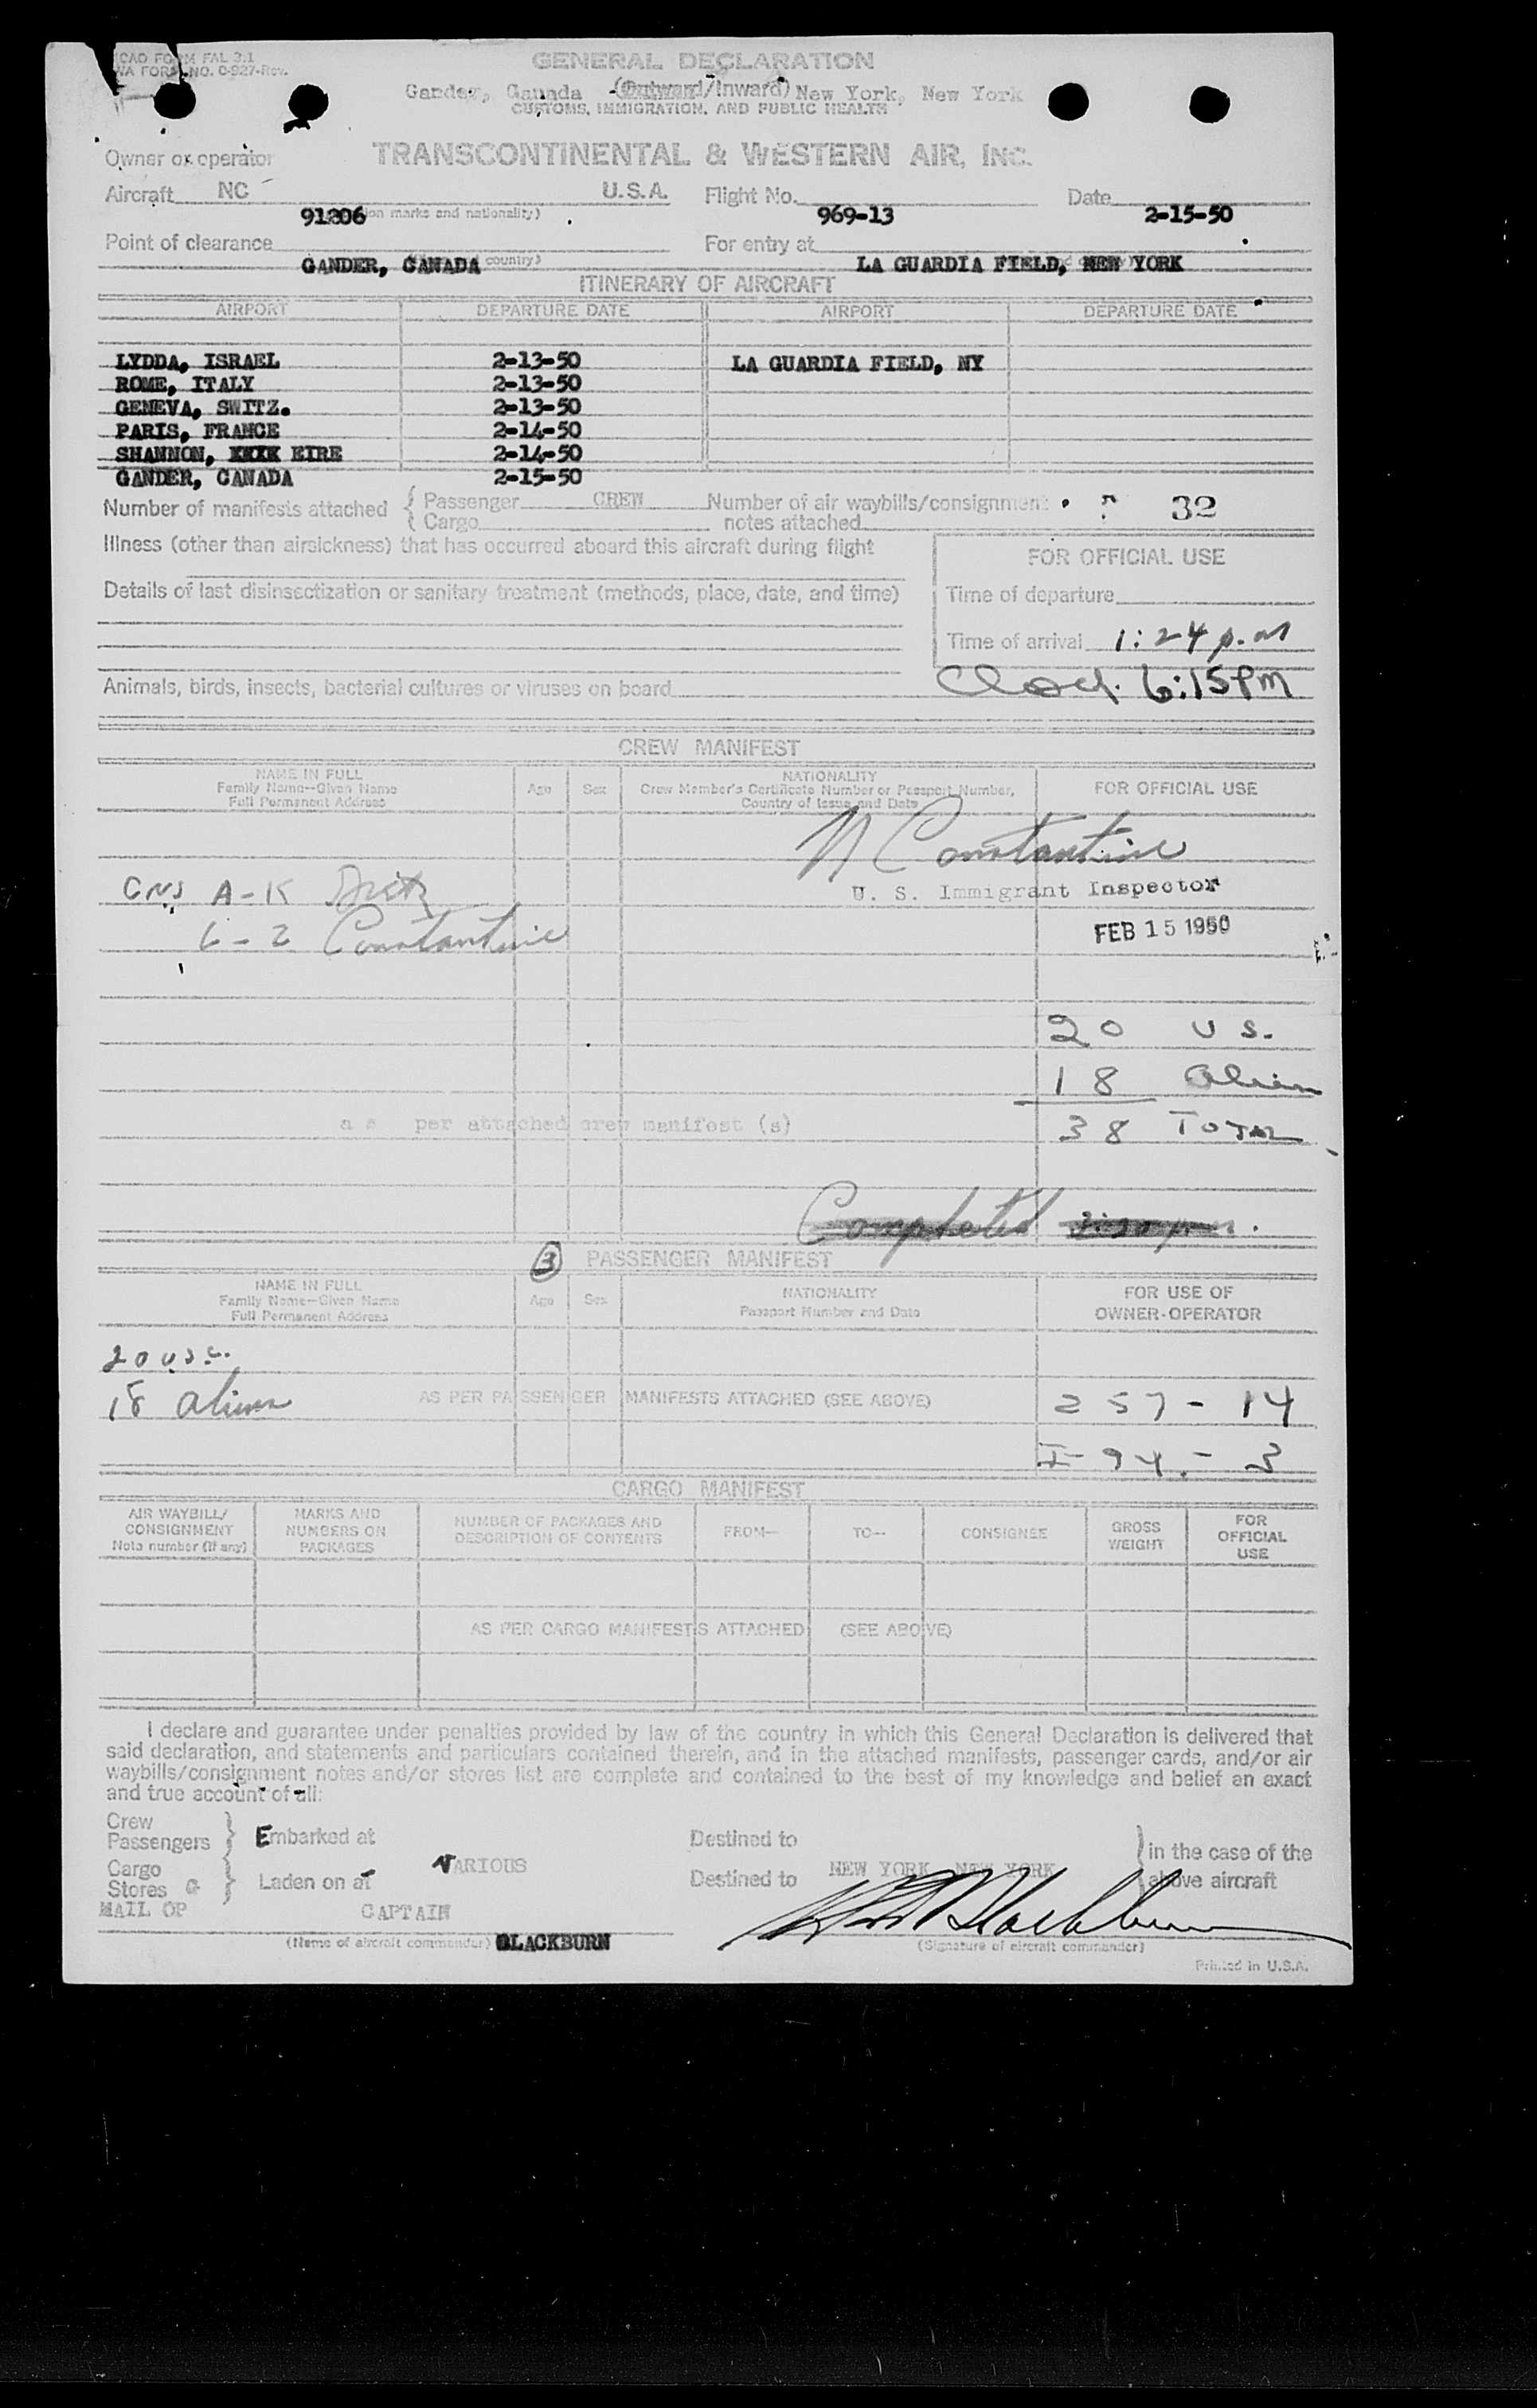 ICAO FORM FAL 3.1
TWA FORM NO. 0-927-Rev.
GENERAL DECLARATION
Gander, Canada (Outward/Inward) New York, New York
CUSTOMS, IMMIGRATION, AND PUBLIC HEALTH
Owner or operator TRANSCONTINENTAL & WESTERN AIR, INC.
Aircraft NC U.S.A. Flight No. Date
91206 ion marks and nationality) 969-13 2-15-50
Point of clearance For entry at
GANDER, CANADA country) LA GUARDIA FIELD, NEW YORK
ITINERARY OF AIRCRAFT
AIRPORT DEPARTURE DATE AIRPORT DEPARTURE DATE
LYDDA, ISRAEL 2-13-50 LA GUARDIA FIELD, NY
ROME, ITALY 2-13-50
GENEVA, SWITZ. 2-13-50
PARIS, FRANCE 2-14-50
SHANNON, EIRE 2-14-50
GANDER, CANADA 2-15-50
Number of manifests attached { Passenger CREW Number of air waybills/consignment 32
{ Cargo notes attached
Illness (other than airsickness) that has occurred aboard this aircraft during flight
FOR OFFICIAL USE
Details of last disinsectization or sanitary treatment (methods, place, date, and time)
Time of departure
Time of arrival 1:24 p.m
Animals, birds, insects, bacterial cultures or viruses on board
6:15 PM
CREW MANIFEST
NAME IN FULL
Family Name—Given Name
Full Permanent Address
Age Sex
NATIONALITY
Crew Member's Certificate Number or Passport Number,
Country of Issue and Date
FOR OFFICIAL USE
N Constantine
U. S. Immigrant Inspector
A-K
Constantine
FEB 15 1950
20 US.
18 alien
as per attached crew manifest (s)
38 TOTAL
Completed
3 PASSENGER MANIFEST
NAME IN FULL
Family Name—Given Name
Full Permanent Address
Age Sex
NATIONALITY
Passport Number and Date
FOR USE OF
OWNER-OPERATOR
20 USC.
18 aliens AS PER PASSENGER MANIFESTS ATTACHED (SEE ABOVE) 257 - 14
I-94 - 3
CARGO MANIFEST
AIR WAYBILL/
CONSIGNMENT
Note number (if any)
MARKS AND
NUMBERS ON
PACKAGES
NUMBER OF PACKAGES AND
DESCRIPTION OF CONTENTS
FROM—
TO—
CONSIGNEE
GROSS
WEIGHT
FOR
OFFICIAL
USE
AS PER CARGO MANIFESTS ATTACHED (SEE ABOVE)
I declare and guarantee under penalties provided by law of the country in which this General Declaration is delivered that
said declaration, and statements and particulars contained therein, and in the attached manifests, passenger cards, and/or air
waybills/consignment notes and/or stores list are complete and contained to the best of my knowledge and belief an exact
and true account of all:
Crew
Passengers } Embarked at Destined to } in the case of the
VARIOUS NEW YORK, NEW YORK
Cargo
Stores } Laden on at Destined to above aircraft
MAIL OP CAPTAIN
(Name of aircraft commander) BLACKBURN (Signature of aircraft commander)
Printed in U.S.A.